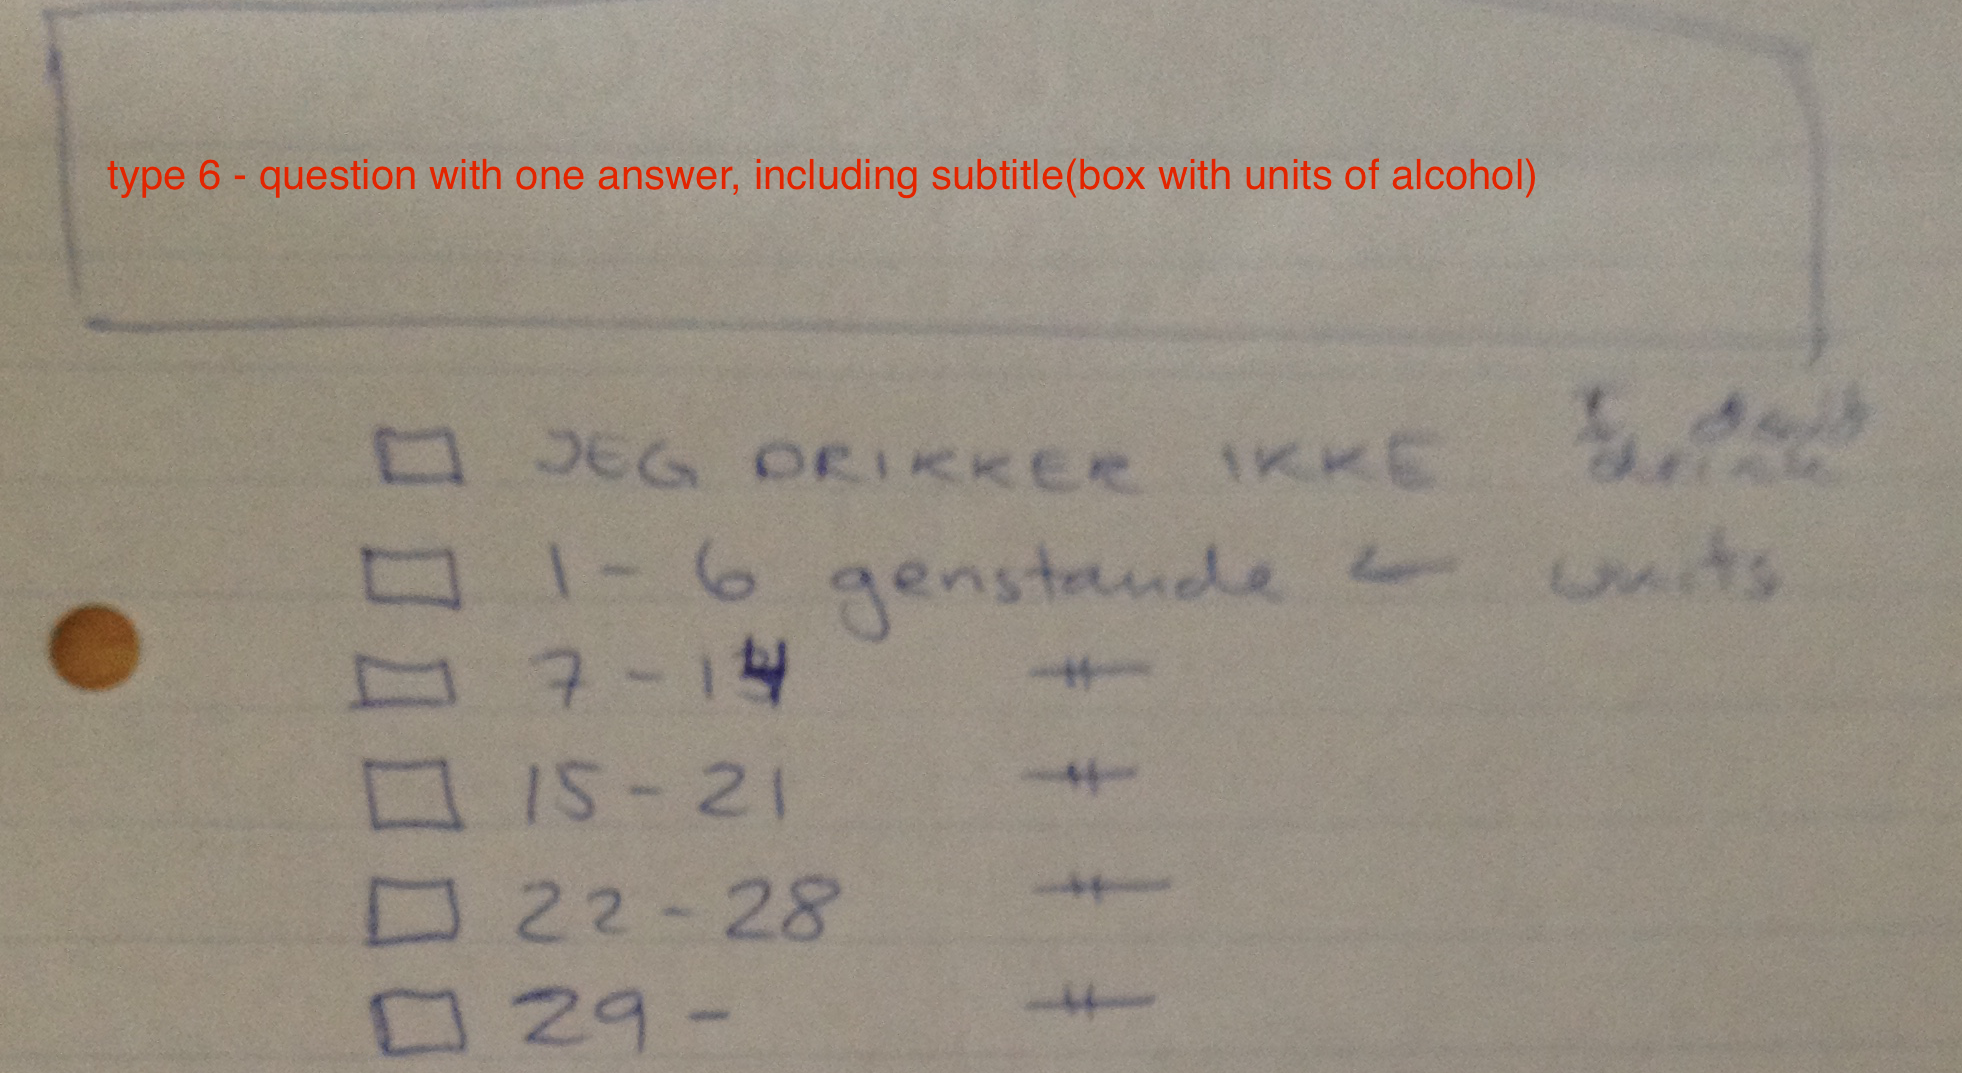 type 6 - question with one answer, including subtitle(box with units of alcohol)
JEG DRIKKER IKKE I don't drink
1 - 6 genstande ← units
7 - 14 -||-
15 - 21 -||-
22 - 28 -||-
29 - -||-